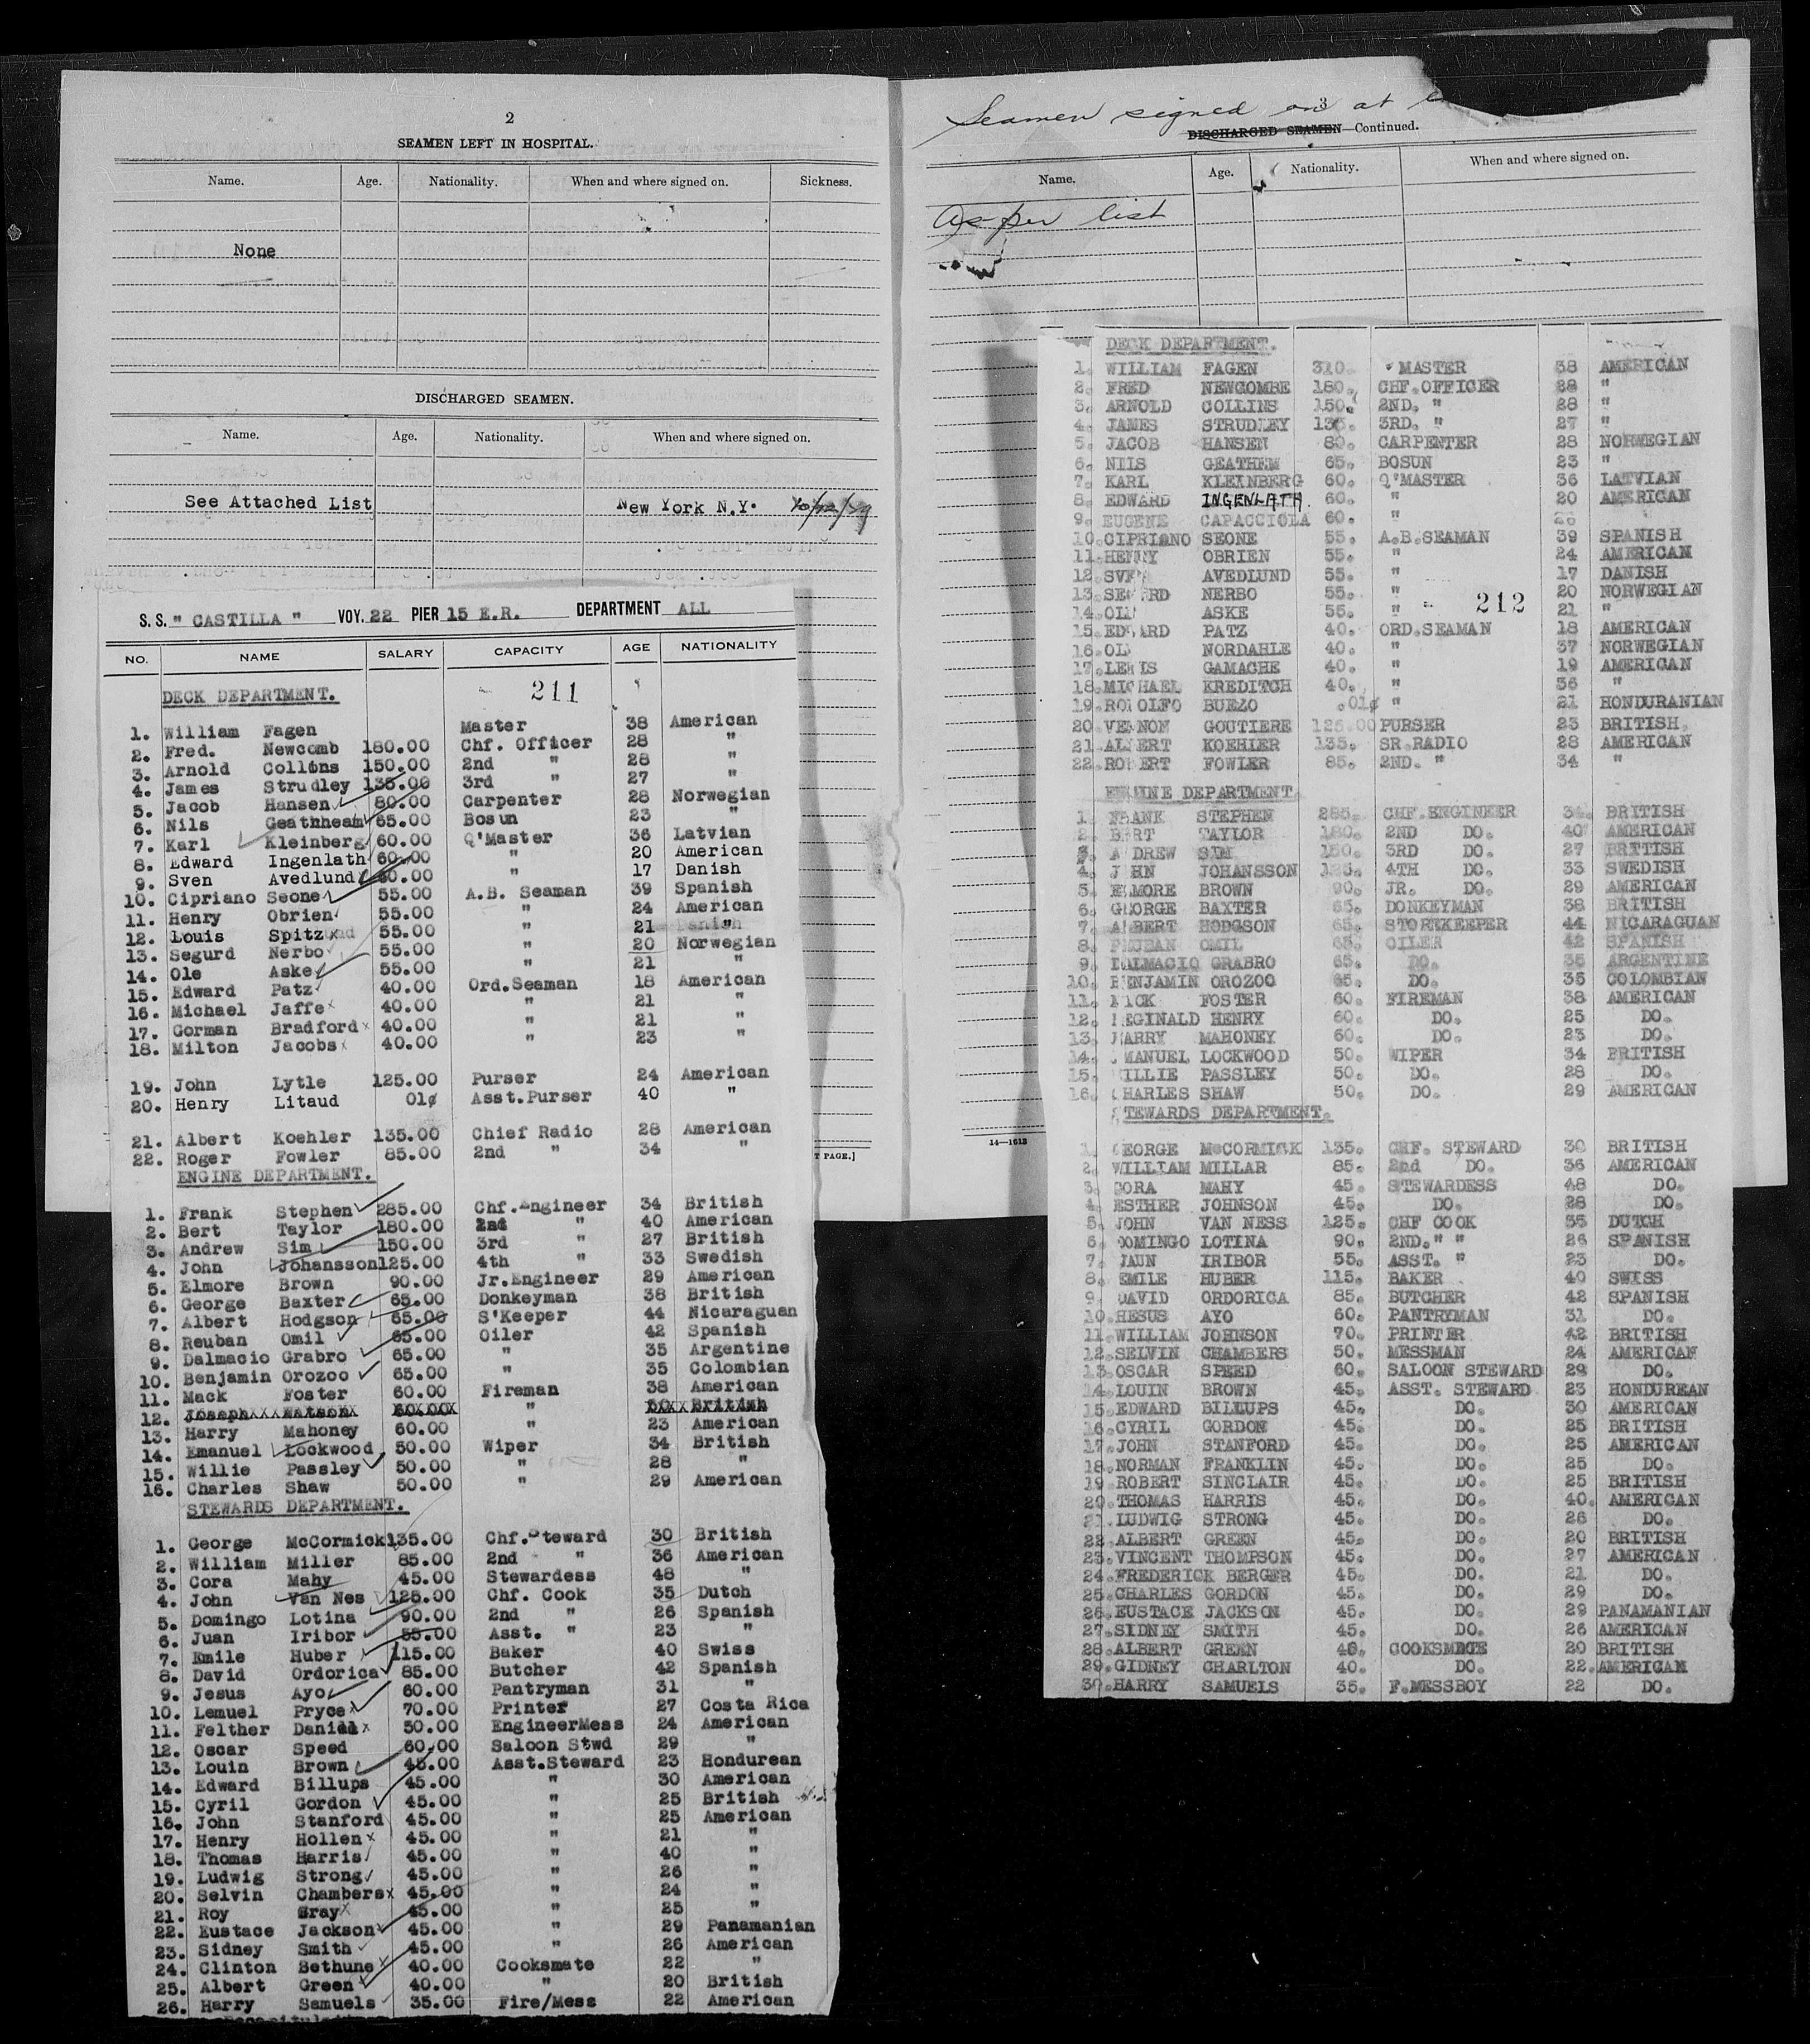 2
SEAMEN LEFT IN HOSPITAL.
Name. Age. Nationality. When and where signed on. Sickness.
None
DISCHARGED SEAMEN.
Name. Age. Nationality. When and where signed on.
See Attached List New York N.Y.
S. S. " CASTILLA " VOY. 22 PIER 15 E.R. DEPARTMENT ALL
NO. NAME SALARY CAPACITY AGE NATIONALITY
211
DECK DEPARTMENT.
1. William Fagen Master 38 American
2. Fred. Newcomb 180.00 Chf. Officer 28 "
3. Arnold Collins 150.00 2nd " 28 "
4. James Strudley 135.00 3rd " 27 "
5. Jacob Hansen 80.00 Carpenter 28 Norwegian
6. Nils Geathheam 65.00 Bosun 23 "
7. Karl Kleinberg 60.00 Q'Master 36 Latvian
8. Edward Ingenlath 60.00 " 20 American
9. Sven Avedlund 60.00 " 17 Danish
10. Cipriano Seone 55.00 A.B. Seaman 39 Spanish
11. Henry Obrien 55.00 " 24 American
12. Louis Spitz 55.00 " 21 "
13. Segurd Nerbo 55.00 " 20 Norwegian
14. Ole Aske 55.00 " 21 "
15. Edward Patz 40.00 Ord.Seaman 18 American
16. Michael Jaffe 40.00 " 21 "
17. Gorman Bradford 40.00 " 21 "
18. Milton Jacobs 40.00 " 23 "
19. John Lytle 125.00 Purser 24 American
20. Henry Litaud 01¢ Asst.Purser 40 "
21. Albert Koehler 135.00 Chief Radio 28 American
22. Roger Fowler 85.00 2nd " 34 "
ENGINE DEPARTMENT.
1. Frank Stephen 285.00 Chf.Engineer 34 British
2. Bert Taylor 180.00 2nd " 40 American
3. Andrew Sim 150.00 3rd " 27 British
4. John Johansson 125.00 4th " 33 Swedish
5. Elmore Brown 90.00 Jr.Engineer 29 American
6. George Baxter 65.00 Donkeyman 38 British
7. Albert Hodgson 65.00 S'Keeper 44 Nicaraguan
8. Reuban Omil 65.00 Oiler 42 Spanish
9. Dalmacio Grabro 65.00 " 35 Argentine
10. Benjamin Orozoo 65.00 " 35 Colombian
11. Mack Foster 60.00 Fireman 38 American
12. Joseph "
13. Harry Mahoney 60.00 " 23 American
14. Emanuel Lockwood 50.00 Wiper 34 British
15. Willie Passley 50.00 " 28 "
16. Charles Shaw 50.00 " 29 American
STEWARDS DEPARTMENT.
1. George McCormick 135.00 Chf.Steward 30 British
2. William Miller 85.00 2nd " 36 American
3. Cora Mahy 45.00 Stewardess 48 "
4. John Van Nes 125.00 Chf. Cook 35 Dutch
5. Domingo Lotina 90.00 2nd " 26 Spanish
6. Juan Iribor 55.00 Asst. " 23 "
7. Emile Huber 115.00 Baker 40 Swiss
8. David Ordorica 85.00 Butcher 42 Spanish
9. Jesus Ayo 60.00 Pantryman 31 "
10. Lemuel Pryce 70.00 Printer 27 Costa Rica
11. Felther Daniel 50.00 EngineerMess 24 American
12. Oscar Speed 60.00 Saloon Stwd 29 "
13. Louin Brown 45.00 Asst.Steward 23 Hondurean
14. Edward Billups 45.00 " 30 American
15. Cyril Gordon 45.00 " 25 British
16. John Stanford 45.00 " 25 American
17. Henry Hollen 45.00 " 21 "
18. Thomas Harris 45.00 " 40 "
19. Ludwig Strong 45.00 " 26 "
20. Selvin Chambers 45.00 " 24 "
21. Roy Gray 45.00 " 25 "
22. Eustace Jackson 45.00 " 29 Panamanian
23. Sidney Smith 45.00 " 26 American
24. Clinton Bethune 40.00 Cooksmate 22 "
25. Albert Green 40.00 " 20 British
26. Harry Samuels 35.00 Fire/Mess 22 American
T PAGE.]
3
Seamen signed on at
DISCHARGED SEAMEN—Continued.
Name. Age. Nationality. When and where signed on.
As per list
DECK DEPARTMENT.
1. WILLIAM FAGEN 310. MASTER 38 AMERICAN
2. FRED NEWCOMBE 180. CHF.OFFICER 28 "
3. ARNOLD COLLINS 150. 2ND. " 28 "
4. JAMES STRUDLEY 135. 3RD. " 27 "
5. JACOB HANSEN 80. CARPENTER 28 NORWEGIAN
6. NILS GEATHEM 65. BOSUN 23 "
7. KARL KLEINBERG 60. Q'MASTER 36 LATVIAN
8. EDWARD INGENLATH. 60. " 20 AMERICAN
9. EUGENE CAPACCIOLA 60. " 26
10. CIPRIANO SEONE 55. A.B.SEAMAN 39 SPANISH
11. HENRY OBRIEN 55. " 24 AMERICAN
12. SVEN AVEDLUND 55. " 17 DANISH
13. SEGURD NERBO 55. " 20 NORWEGIAN
212
14. OLE ASKE 55. " 21 "
15. EDWARD PATZ 40. ORD.SEAMAN 18 AMERICAN
16. OLE NORDAHLE 40. " 37 NORWEGIAN
17. LEWIS GAMACHE 40. " 19 AMERICAN
18. MICHAEL KREDITCH 40. " 36 "
19. RODOLFO BUEZO .01¢ " 21 HONDURANIAN
20. VERNON GOUTIERE 125.00 PURSER 25 BRITISH
21. ALBERT KOEHLER 135. SR.RADIO 28 AMERICAN
22. ROBERT FOWLER 85. 2ND. " 34 "
ENGINE DEPARTMENT
1. FRANK STEPHEN 285. CHF.ENGINEER 34. BRITISH
2. BERT TAYLOR 180. 2ND DO. 40 AMERICAN
3. ANDREW SIM 150. 3RD DO. 27 BRITISH
4. JOHN JOHANSSON 125. 4TH DO. 33 SWEDISH
5. ELMORE BROWN 90. JR. DO. 29 AMERICAN
6. GEORGE BAXTER 65. DONKEYMAN 38 BRITISH
7. ALBERT HODGSON 65. STOREKEEPER 44 NICARAGUAN
8. REUBAN OMIL 65. OILER 42 SPANISH
9. DALMACIO GRABRO 65. DO. 35 ARGENTINE
10. BENJAMIN OROZOO 65. DO. 35 COLOMBIAN
11. MACK FOSTER 60. FIREMAN 38 AMERICAN
12. REGINALD HENRY 60. DO. 25 DO.
13. HARRY MAHONEY 60. DO. 23 DO.
14. EMANUEL LOCKWOOD 50. WIPER 34 BRITISH
15. WILLIE PASSLEY 50. DO. 28 DO.
16. CHARLES SHAW 50. DO. 29 AMERICAN
STEWARDS DEPARTMENT.
1. GEORGE McCORMICK 135. CHF. STEWARD 30 BRITISH
2. WILLIAM MILLAR 85. 2nd DO. 36 AMERICAN
3. CORA MAHY 45. STEWARDESS 48 DO.
4. ESTHER JOHNSON 45. DO. 28 DO.
5. JOHN VAN NESS 125. CHF COOK 35 DUTCH
6. DOMINGO LOTINA 90. 2ND." " 26 SPANISH
7. JAUN IRIBOR 55. ASST. " 23 DO.
8. EMILE HUBER 115. BAKER 40 SWISS
9. DAVID ORDORICA 85. BUTCHER 42 SPANISH
10. HESUS AYO 60. PANTRYMAN 31 DO.
11. WILLIAM JOHNSON 70. PRINTER 42 BRITISH
12. SELVIN CHAMBERS 50. MESSMAN 24 AMERICAN
13. OSCAR SPEED 60. SALOON STEWARD 29 DO.
14. LOUIN BROWN 45. ASST. STEWARD 23 HONDUREAN
15. EDWARD BILLUPS 45. DO. 30 AMERICAN
16. CYRIL GORDON 45. DO. 25 BRITISH
17. JOHN STANFORD 45. DO. 25 AMERICAN
18. NORMAN FRANKLIN 45. DO. 25 DO.
19. ROBERT SINCLAIR 45. DO. 25 BRITISH
20. THOMAS HARRIS 45. DO. 40. AMERICAN
21. LUDWIG STRONG 45. DO. 26 DO.
22. ALBERT GREEN 45. DO. 20 BRITISH
23. VINCENT THOMPSON 45. DO. 27 AMERICAN
24. FREDERICK BERGER 45. DO. 21 DO.
25. CHARLES GORDON 45. DO. 29 DO.
26. EUSTACE JACKSON 45. DO. 29 PANAMANIAN
27. SIDNEY SMITH 45. DO. 26 AMERICAN
28. ALBERT GREEN 40. COOKSMATE 20 BRITISH
29. GIDNEY CHARLTON 40. DO. 22. AMERICAN
30. HARRY SAMUELS 35. F.MESSBOY 22 DO.
14—1613